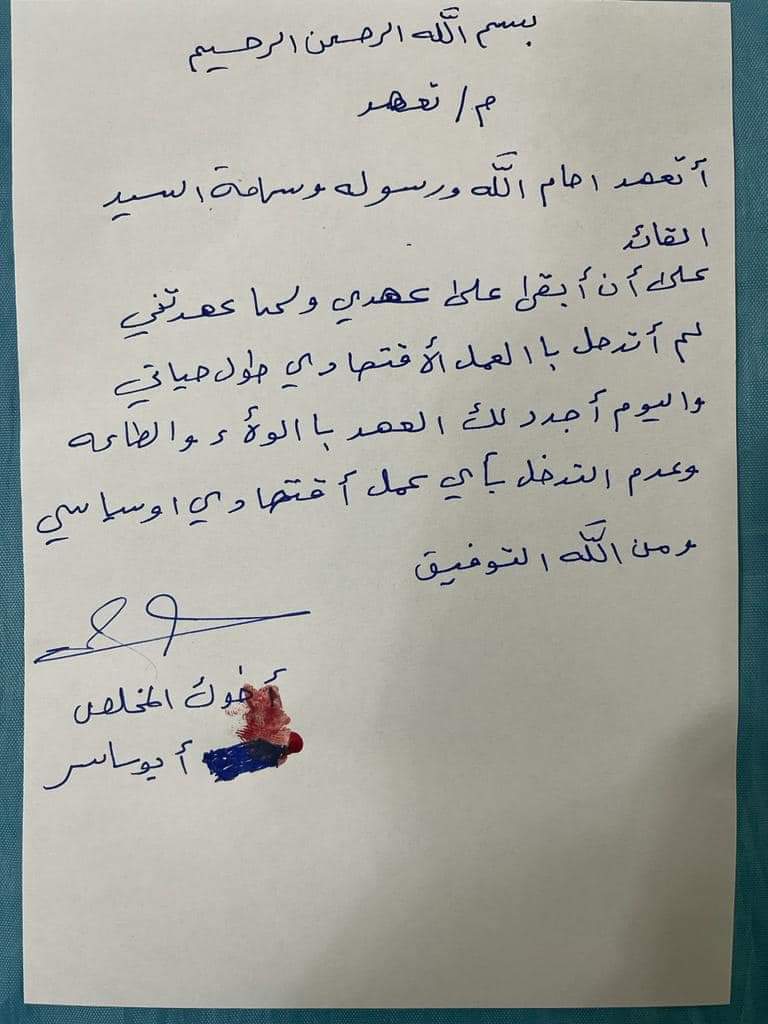 بسم الله الرحمن الرحيم
م/ تعهد
أتعهد امام الله ورسوله وسماحة السيد
القائد
على أن أبقى على عهدي ولما عهدتني
لم أتدخل با العمل الأقتصادي طول حياتي
واليوم أجدد لك العهد با الولأء والطاعه
وعدم التدخل بأي عمل أقتصادي اوسياسي
ومن الله التوفيق
أخوك المخلص
أبوياسر